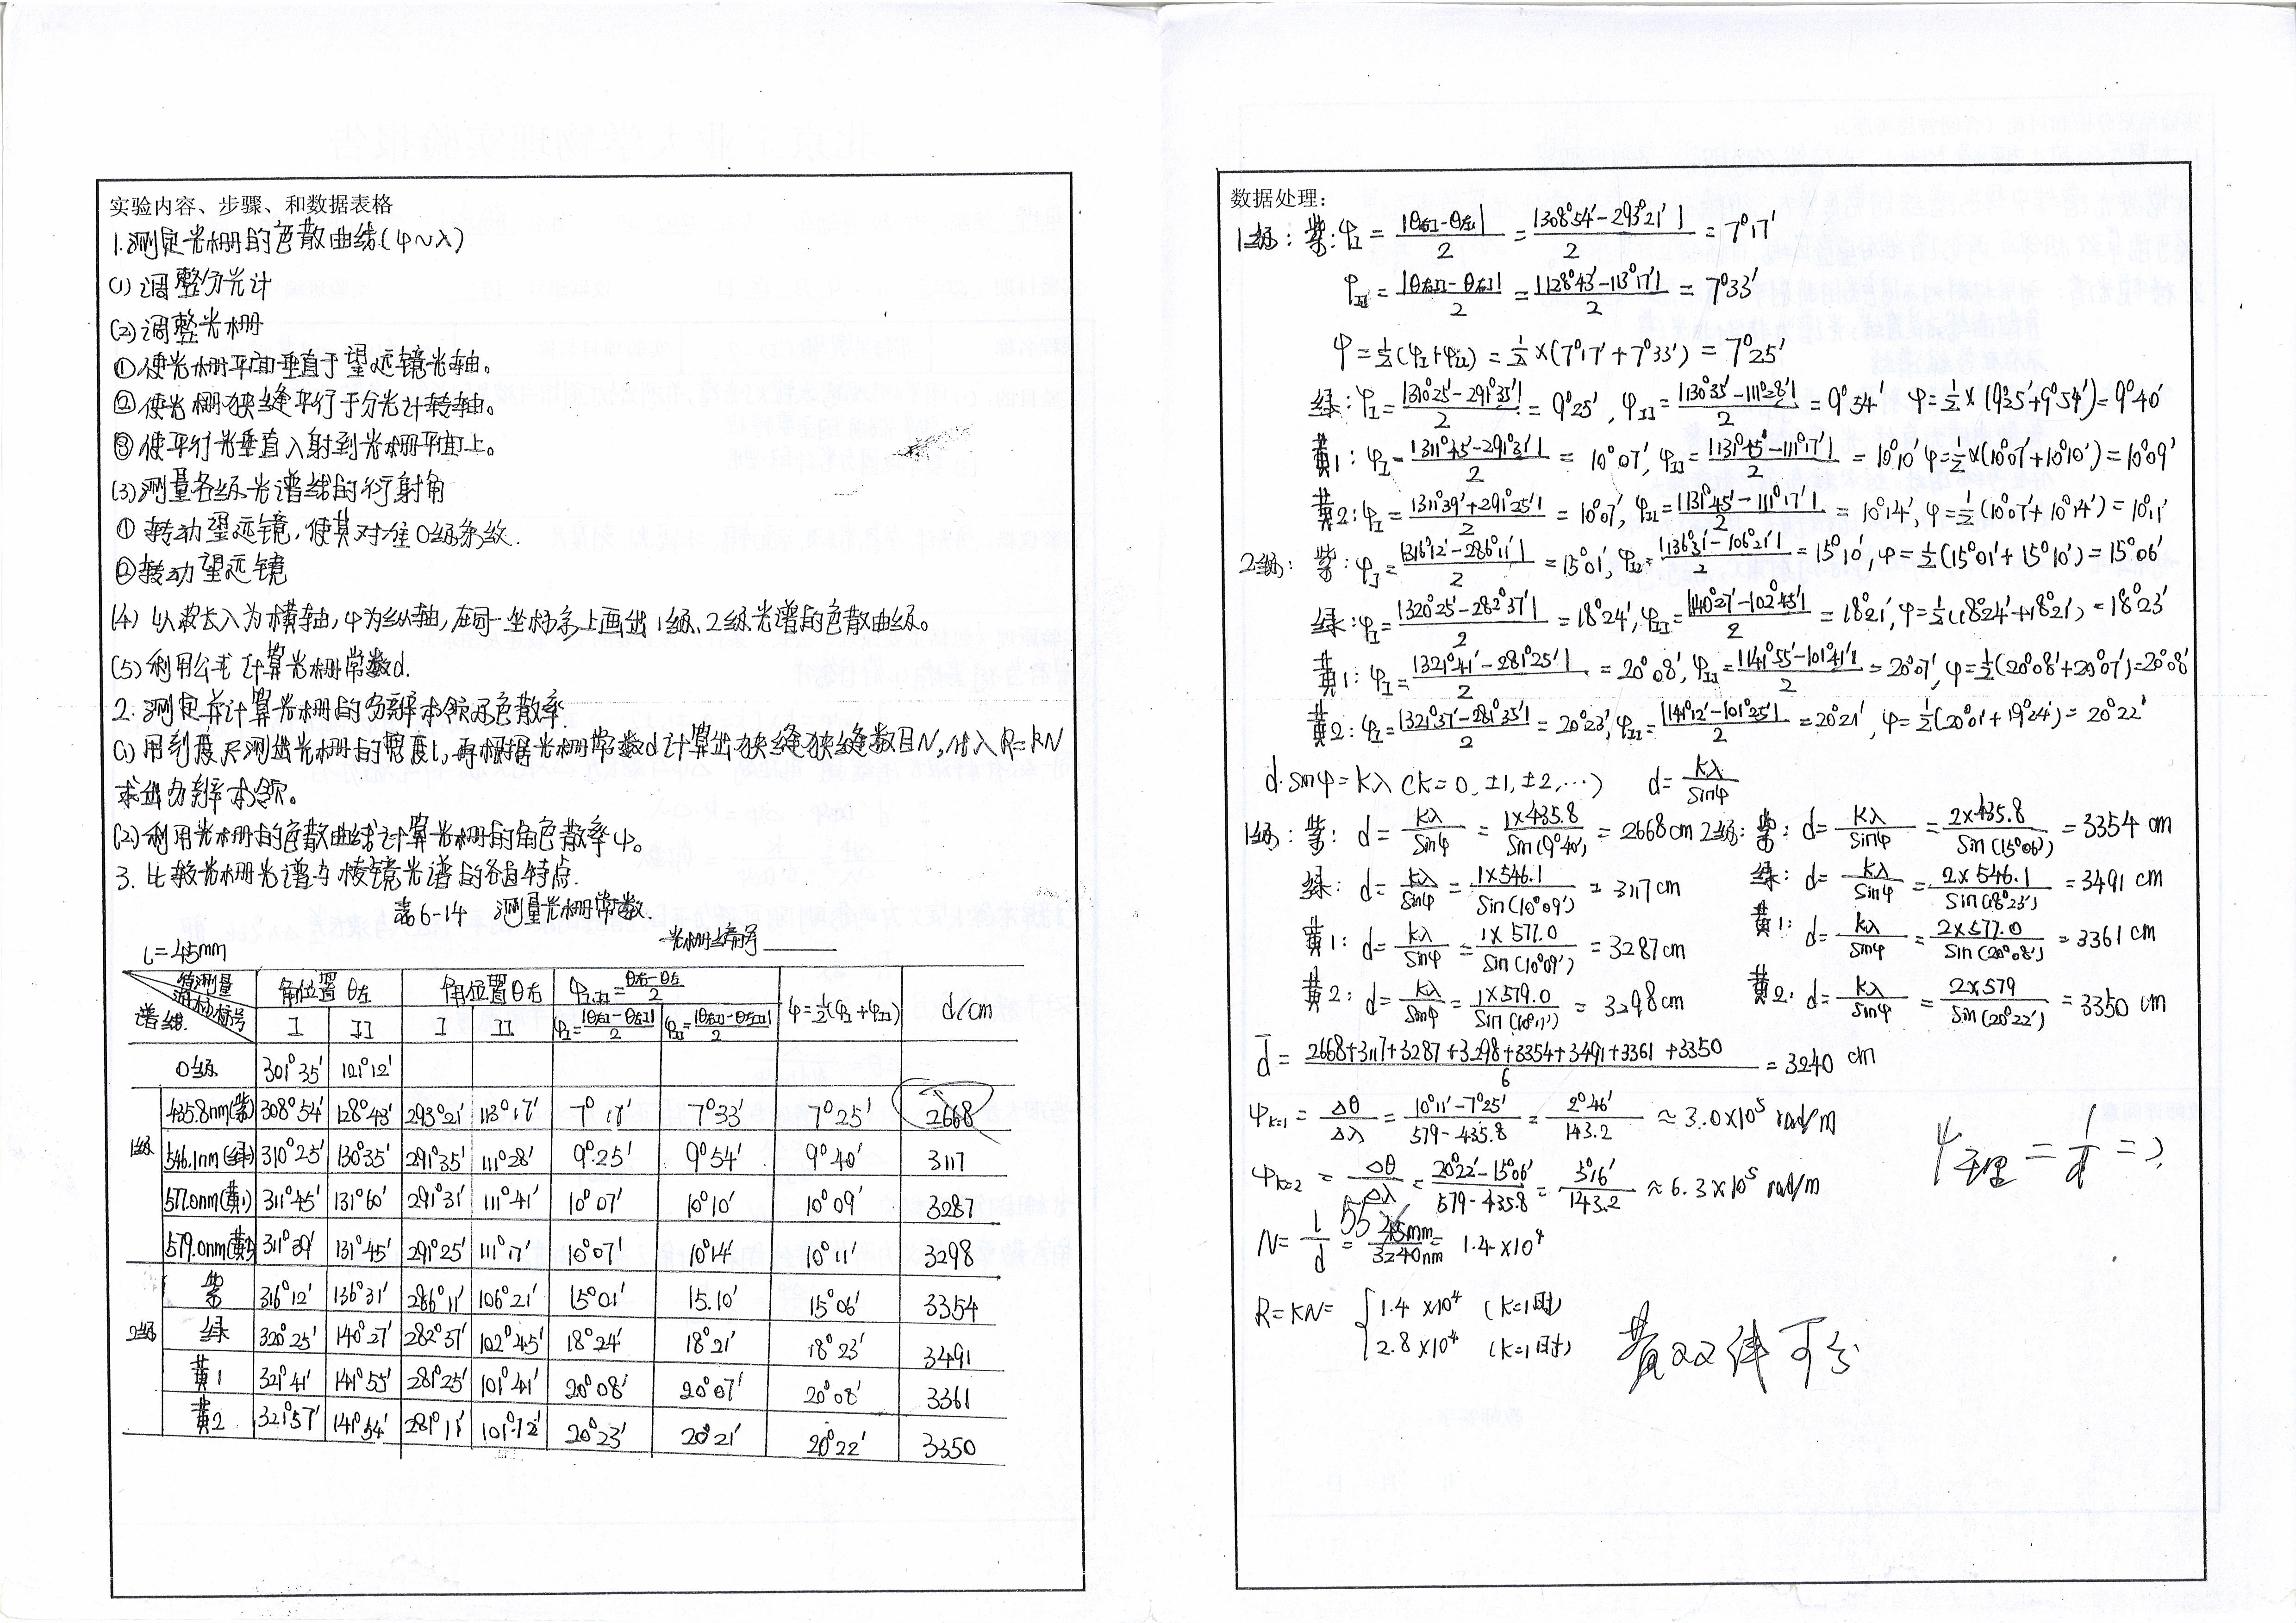 实验内容、步骤、和数据表格
1.测定光栅的色散曲线(φ~λ)
(1)调整分光计
(2)调整光栅
①使光栅平面垂直于望远镜光轴。
②使光栅狭缝平行于分光计转轴。
③使平行光垂直入射到光栅平面上。
(3)测量各级光谱线的衍射角
①转动望远镜,使其对准0级条纹.
②转动望远镜
(4)以波长入为横轴,φ为纵轴,在同一坐标系上画出1级、2级光谱的色散曲线。
(5)利用公式计算光栅常数d.
2.测定并计算光栅的分辨本领及色散率
(1)用刻度尺测出光栅的宽度l,再根据光栅常数d计算出狭缝狭缝数目N,代入R=KN
求出分辨本领。
(2)利用光栅的色散曲线计算光栅的角色散率ψ。
3.比较光栅光谱与棱镜光谱的各自特点.
表6-14 测量光栅常数.
l=45mm 光栅编号
谱线 待测量 游标号 角位置θ左 角位置θ右 φI,II=θ右-θ左/2 φ=½(φI+φII) d/cm
I II I II φI=|θ右I-θ左I|/2 φII=|θ右II-θ左II|/2
0级 301°35' 121°12'
1级 435.8nm(紫) 308°54' 128°43' 293°21' 113°17' 7°17' 7°33' 7°25' 2668
546.1nm(绿) 310°25' 130°35' 291°35' 111°28' 9°25' 9°54' 9°40' 3117
577.0nm(黄1) 311°45' 131°60' 291°31' 111°41' 10°07' 10°10' 10°09' 3287
579.0nm(黄2) 311°39' 131°45' 291°25' 111°17' 10°07' 10°14' 10°11' 3298
2级 紫 316°12' 136°31' 286°11' 106°21' 15°01' 15.10' 15°06' 3354
绿 320°25' 140°27' 282°37' 102°45' 18°24' 18°21' 18°23' 3491
黄1 321°41' 141°55' 281°25' 101°41' 20°08' 20°07' 20°08' 3361
黄2 321°57' 141°54' 281°11' 101°12' 20°23' 20°21' 20°22' 3350
数据处理:
1级:紫:φI=|θ右I-θ左I|/2=|308°54'-293°21'|/2=7°17'
φII=|θ右II-θ左II|/2=|128°43'-113°17'|/2=7°33'
φ=½(φI+φII)=½×(7°17'+7°33')=7°25'
绿:φI=|310°25'-291°35'|/2=9°25',φII=|130°35'-111°28'|/2=9°54' φ=½×(9°25'+9°54')=9°40'
黄1:φI=|311°45'-291°31'|/2=10°07',φII=|131°45'-111°17'|/2=10°10' φ=½×(10°07'+10°10')=10°09'
黄2:φI=|311°39'+291°25'|/2=10°07',φII=|131°45'-111°17'|/2=10°14',φ=½(10°07'+10°14')=10°11'
2级:紫:φI=|316°12'-286°11'|/2=15°01',φII=|136°31'-106°21'|/2=15°10',φ=½(15°01'+15°10')=15°06'
绿:φI=|320°25'-282°37'|/2=18°24',φII=|140°27'-102°45'|/2=18°21',φ=½(18°24'+18°21')=18°23'
黄1:φI=|321°41'-281°25'|/2=20°08',φII=|141°55'-101°41'|/2=20°07',φ=½(20°08'+20°07')=20°08'
黄2:φI=|321°37'-281°35'|/2=20°23',φII=|141°12'-101°25'|/2=20°21',φ=½(20°01'+19°24')=20°22'
d·sinφ=Kλ (K=0,±1,±2,···) d=Kλ/sinφ
1级:紫:d=Kλ/sinφ=1×435.8/sin(9°40')=2668cm 2级:紫:d=Kλ/sinφ=2×435.8/sin(15°06')=3354 cm
绿:d=Kλ/sinφ=1×546.1/sin(10°09')=3117cm 绿:d=Kλ/sinφ=2×546.1/sin(18°23')=3491 cm
黄1:d=Kλ/sinφ=1×577.0/sin(10°09')=3287cm 黄1:d=Kλ/sinφ=2×577.0/sin(20°08')=3361 cm
黄2:d=Kλ/sinφ=1×579.0/sin(10°11')=3298cm 黄2:d=Kλ/sinφ=2×579/sin(20°22')=3350 cm
d̄=2668+3117+3287+3298+3354+3491+3361+3350/6=3240 cm
ψK=1=Δθ/Δλ=10°11'-7°25'/579-435.8=2°46'/143.2≈3.0×10⁵ rad/m
ψK=2=Δθ/Δλ=20°22'-15°06'/579-435.8=5°16'/143.2≈6.3×10⁵ rad/m
ψ理=1/d=?
N=l/d=45mm/3240nm=1.4×10⁴
55
R=KN={1.4×10⁴ (K=1时)
2.8×10⁴ (K=1时)
黄双线可分